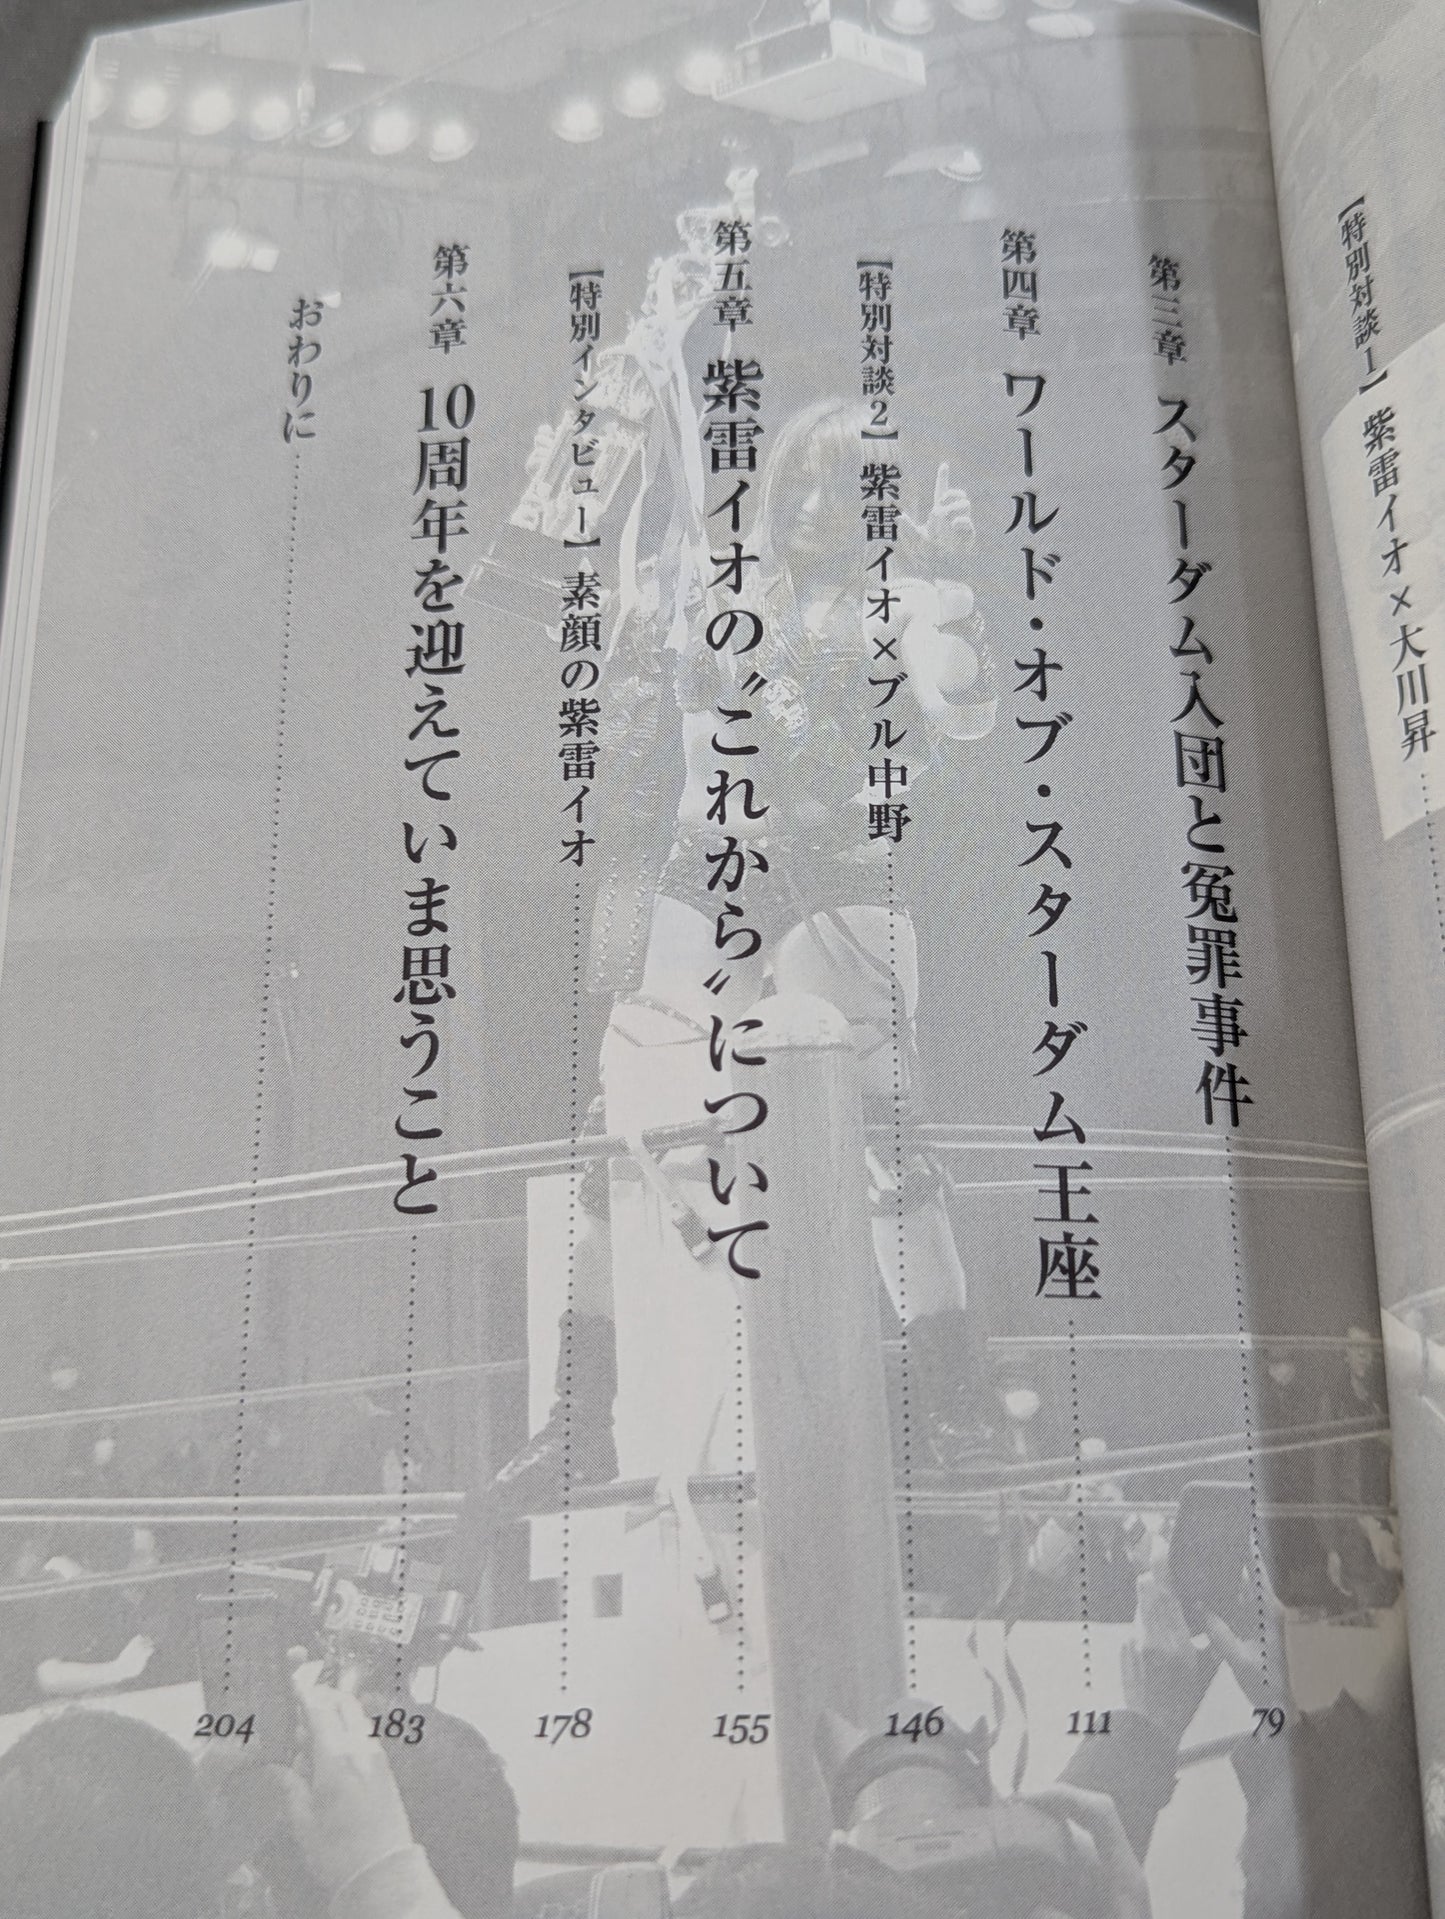 【特別対談1】 紫雷イオ×大川昇
第三章 スターダム入団と冤罪事件 79
第四章 ワールド・オブ・スターダム王座 111
【特別対談2】 紫雷イオ×ブル中野 146
第五章 紫雷イオの〝これから〟について 155
【特別インタビュー】 素顔の紫雷イオ 178
第六章 10周年を迎えていま思うこと 183
おわりに 204